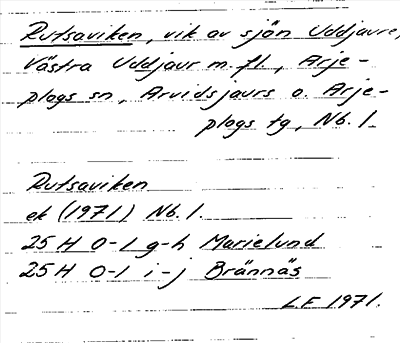 Rutsaviken, vik av sjön Uddjaure,
Västra Uddjaur m. fl., Arje-
plogs sn, Arvidsjaurs o. Arje-
plogs tg, Nb. l.
Rutsaviken
ek (1971) Nb. l.
25 H 0-1 g-h Marielund
25 H 0-1 i-j Brännäs
L.E 1971.